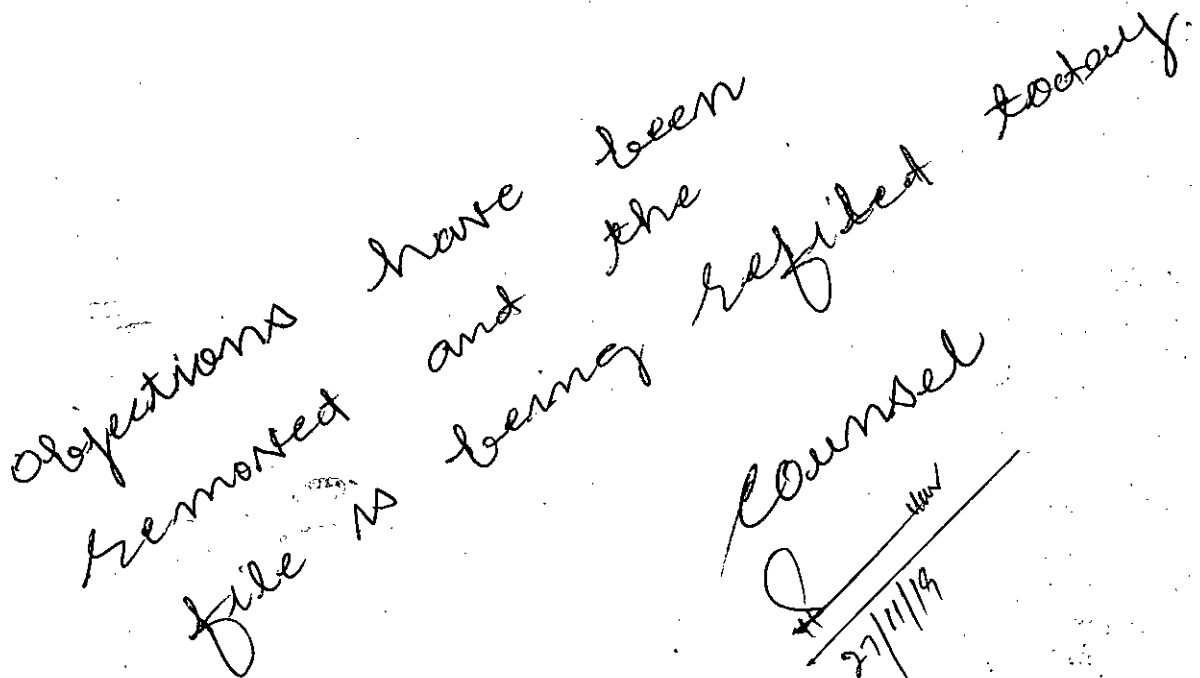 Objections have been
removed and the
file is being refiled today.
Counsel
27/11/19